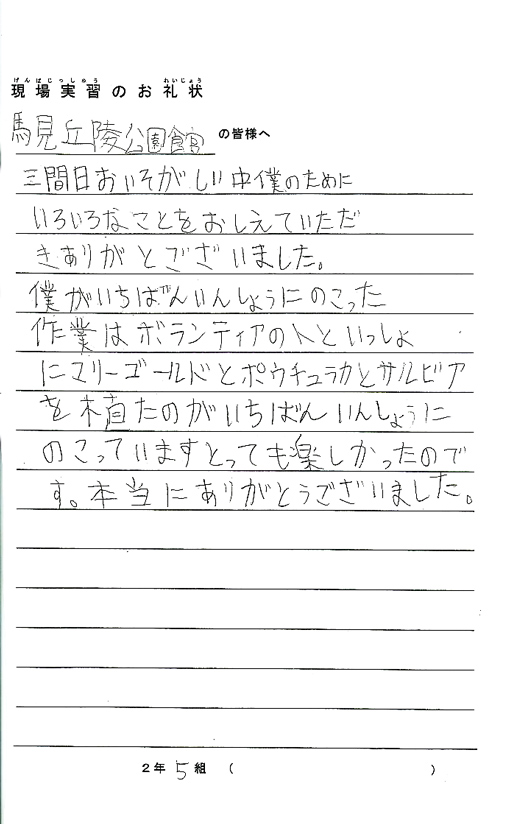 げんばじっしゅう れいじょう
現場実習のお礼状
馬見丘陵公園館の皆様へ
三間日おいそがしい中僕のために
いろいろなことをおしえていただ
きありがとございました。
僕がいちばんいんしょうにのこった
作業はボランティアの人といっしょ
にマリーゴールドとポウチュラカとサルビア
を植たのがいちばんいんしょうに
のこっていますとっても楽しかったので
す。本当にありがとうございました。
2年5組 ( )